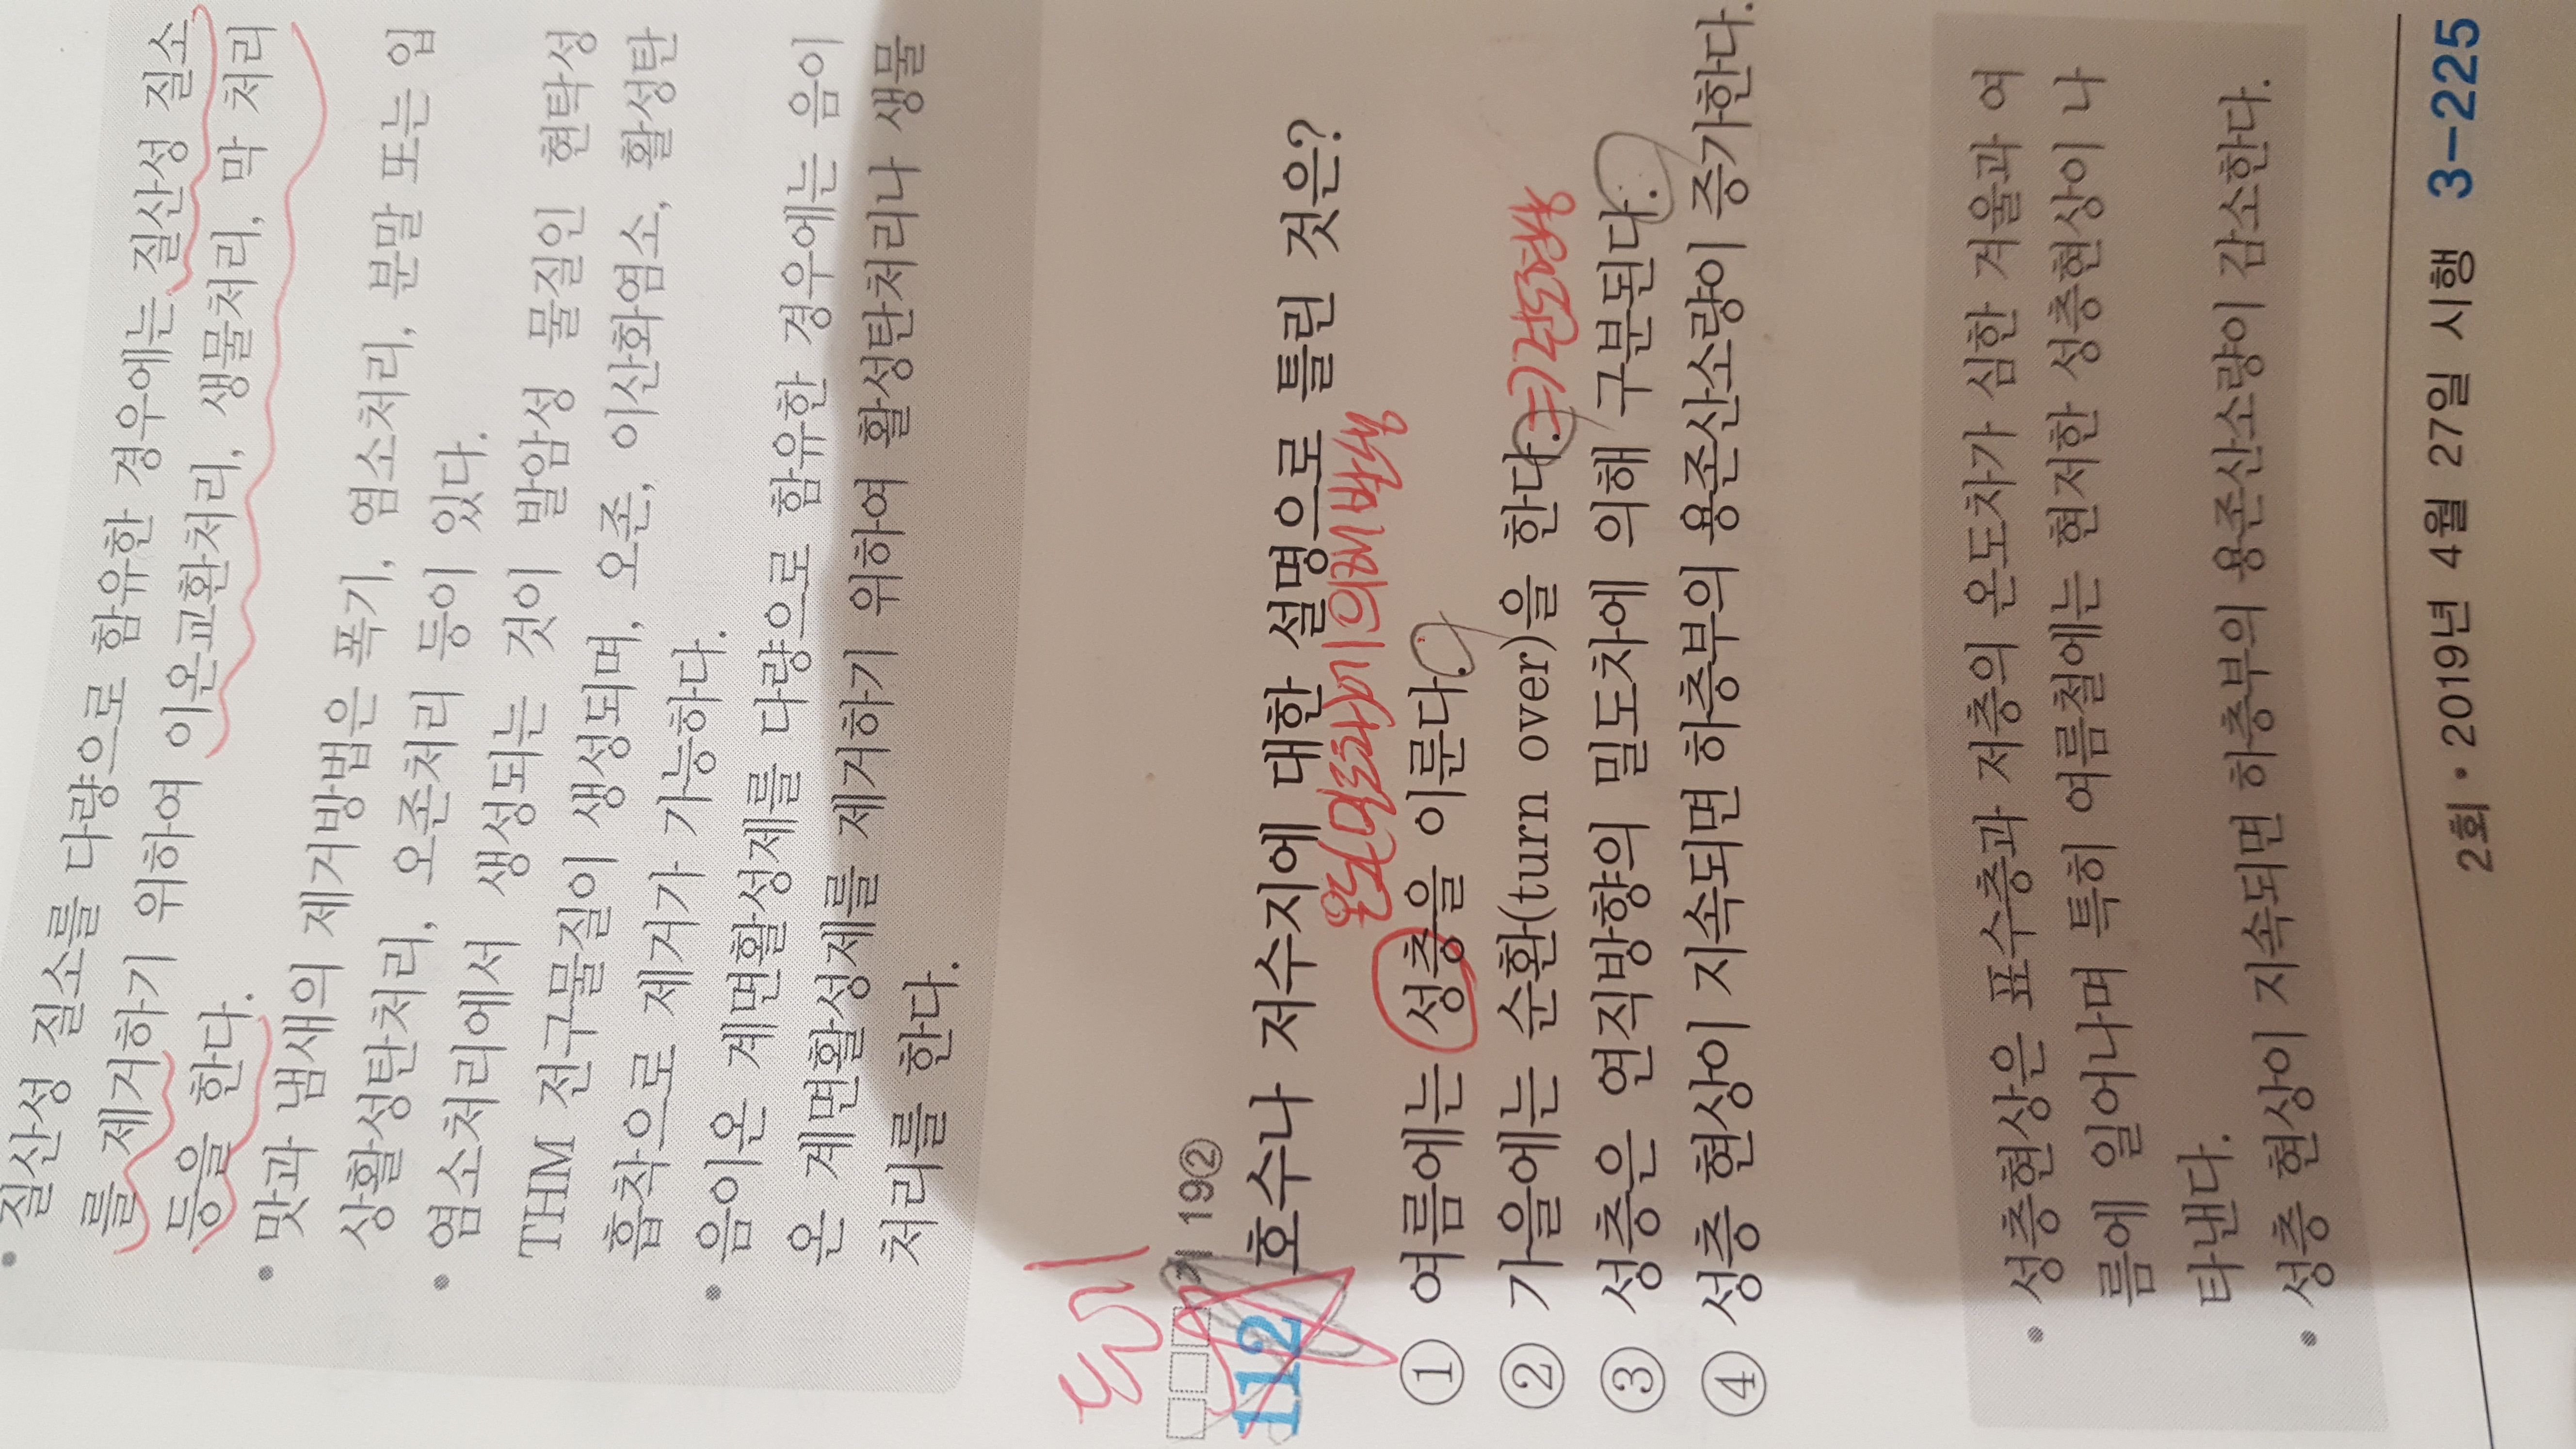 • 질산성 질소를 다량으로 함유한 경우에는 질산성 질소
를 제거하기 위하여 이온교환처리, 생물처리, 막 처리
등을 한다.
• 맛과 냄새의 제거방법은 폭기, 염소처리, 분말 또는 입
상활성탄처리, 오존처리 등이 있다.
• 염소처리에서 생성되는 것이 발암성 물질인 현탁성
THM 전구물질이 생성되며, 오존, 이산화염소, 활성탄
흡착으로 제거가 가능하다.
• 음이온 계면활성제를 다량으로 함유한 경우에는 음이
온 계면활성제를 제거하기 위하여 활성탄처리나 생물
처리를 한다.
기 19②
112 호수나 저수지에 대한 설명으로 틀린 것은?
온도(밀도차)에 의해 발생
① 여름에는 성층을 이룬다.
② 가을에는 순환(turn over)을 한다. =전도현상
③ 성층은 연직방향의 밀도차에 의해 구분된다.
④ 성층 현상이 지속되면 하층부의 용존산소량이 증가한다.
• 성층현상은 표수층과 저층의 온도차가 심한 겨울과 여
름에 일어나며 특히 여름철에는 현저한 성층현상이 나
타낸다.
• 성층 현상이 지속되면 하층부의 용존산소량이 감소한다.
2회 • 2019년 4월 27일 시행 3-225